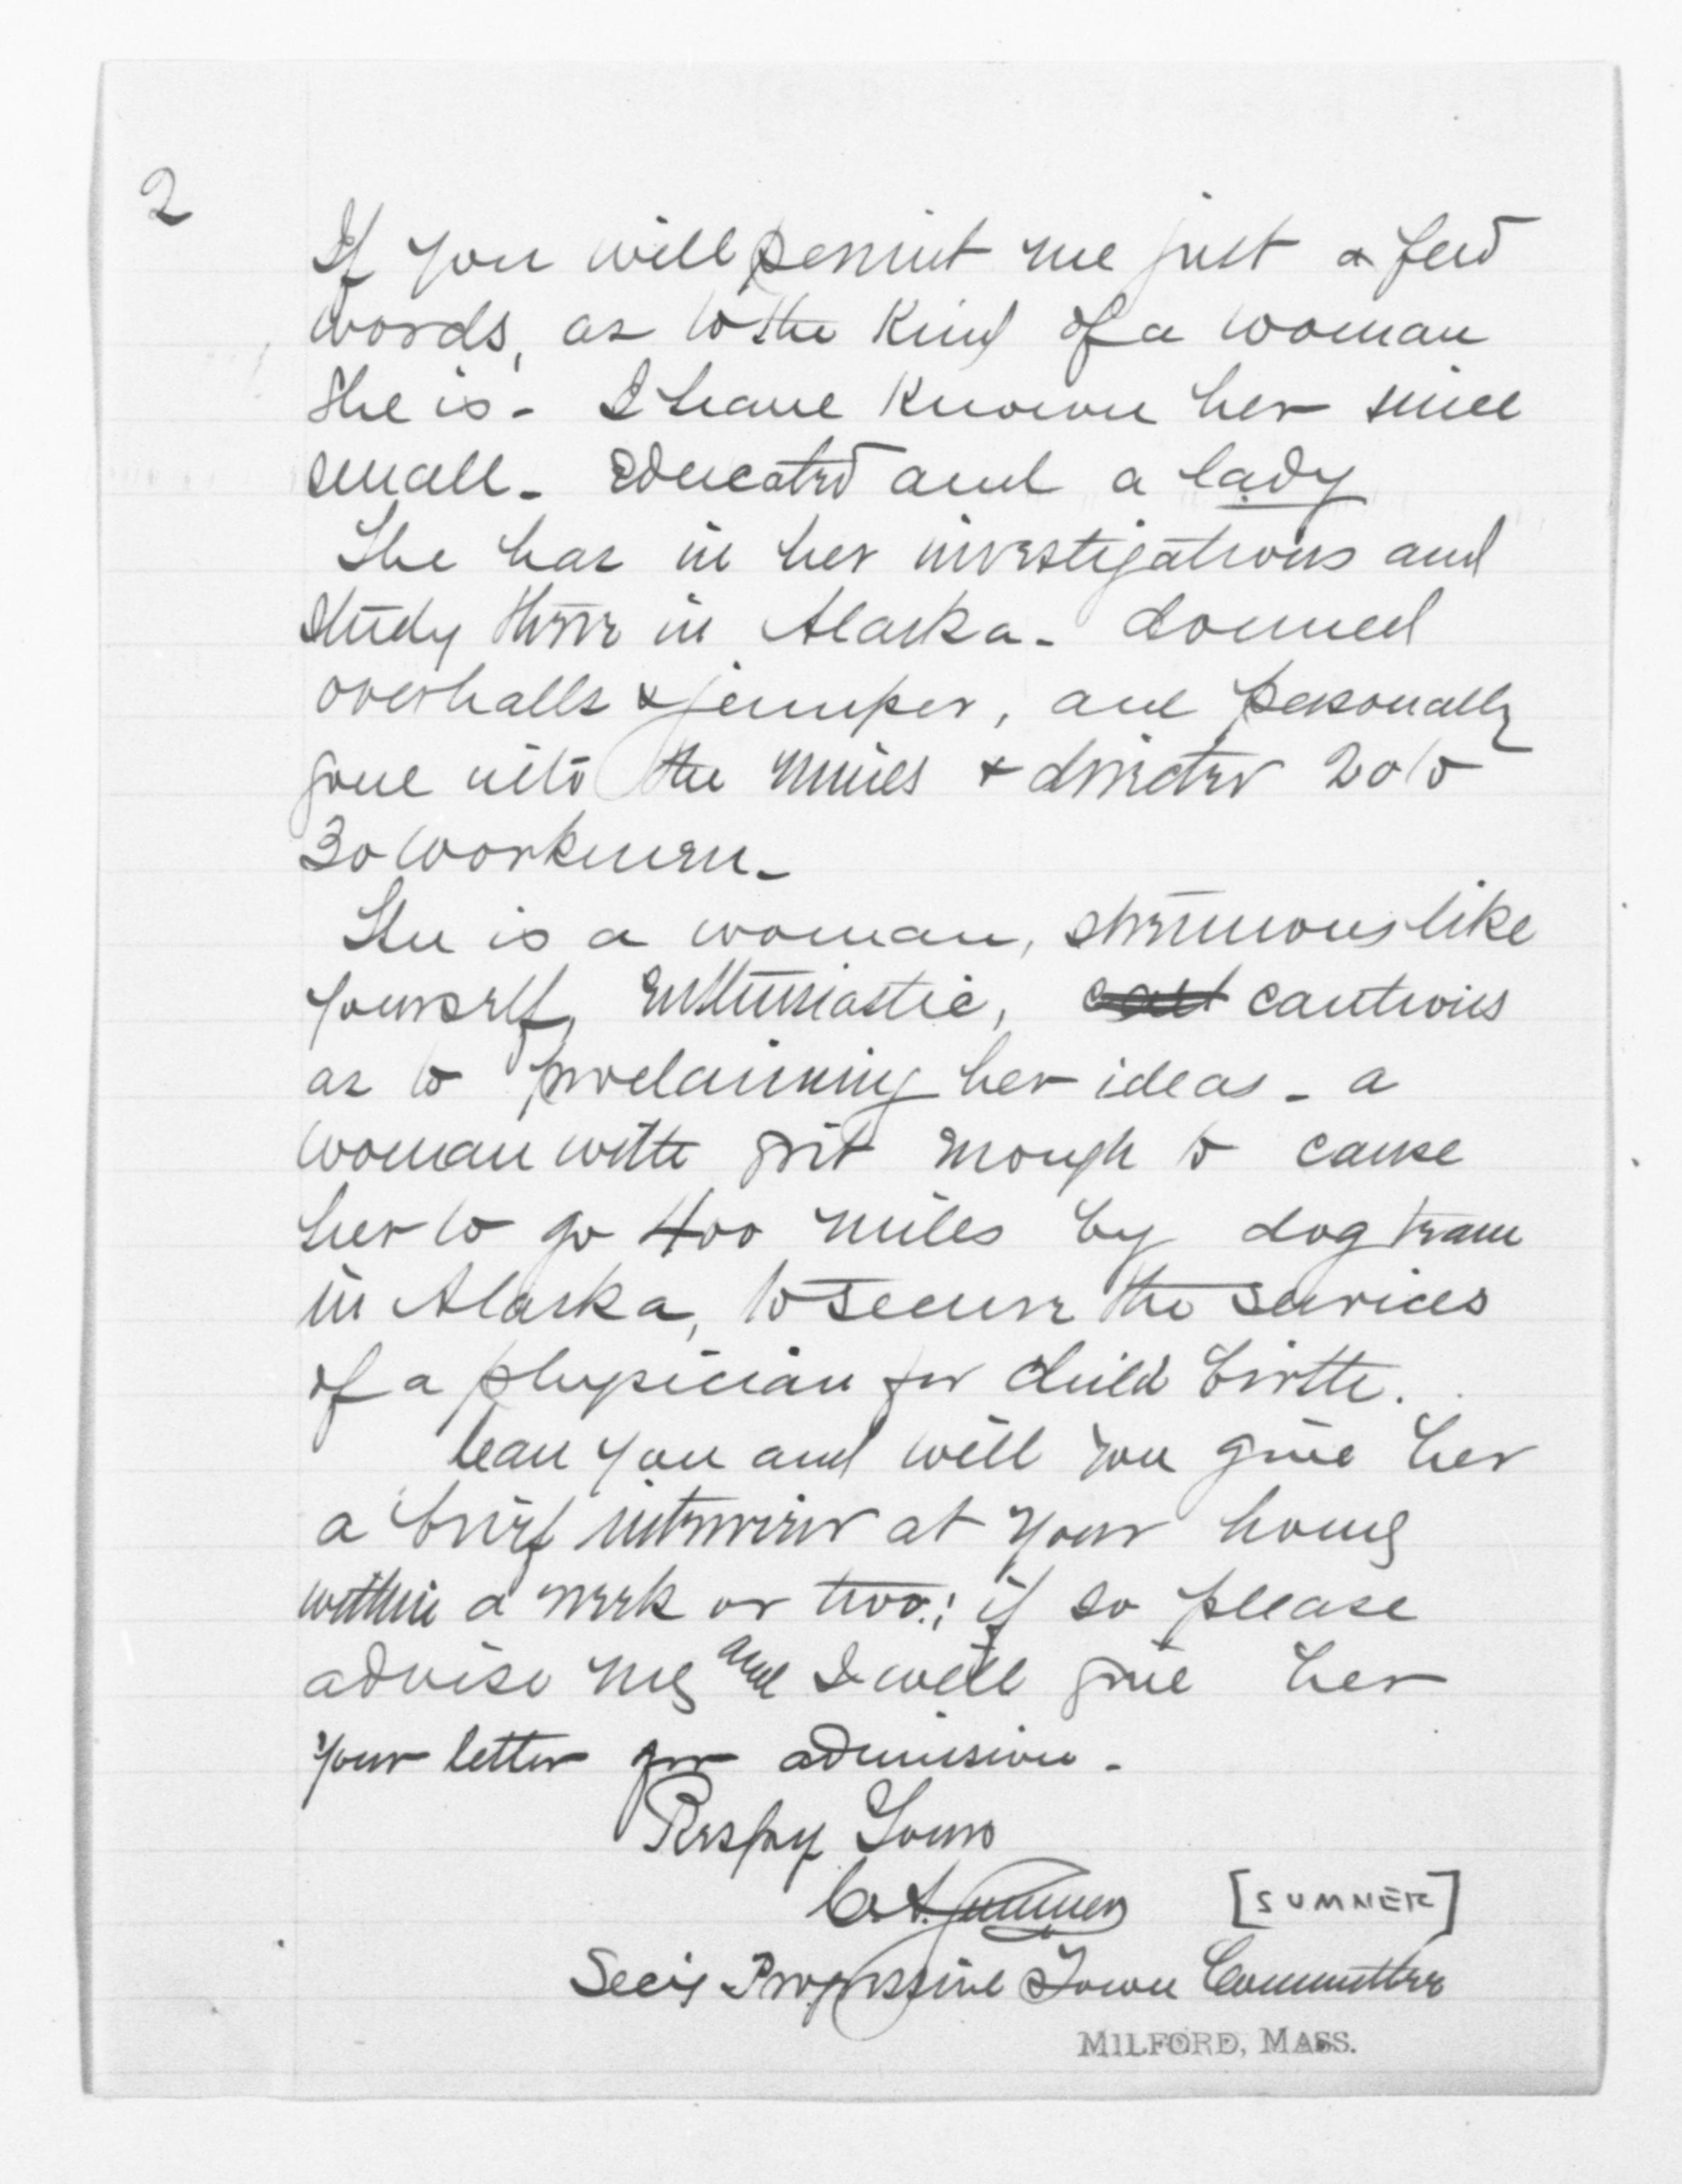 2
If you will permit me just a few
words, as to the kind of a woman
she is - I have known her since
small - educated and a lady
She has in her investigations and
study there in Alaska - donned
overhalls & jumper, and personally
gone into the mines & directed 20 to
30 workmen -
She is a woman, strenuous like
yourself, enthusiastic, caut cautious
as to proclaiming her ideas - a
woman with grit enough to cause
her to go 400 miles by dog train
in Alaska, to secure the services
of a physician for child birth.
Can you and will you give her
a brief interview at your home
within a week or two; if so please
advise me and I will give her
your letter for admission -
Respy Yours
C. A. Sumner [SUMNER]
Secy Progressive Town Committee
MILFORD, MASS.